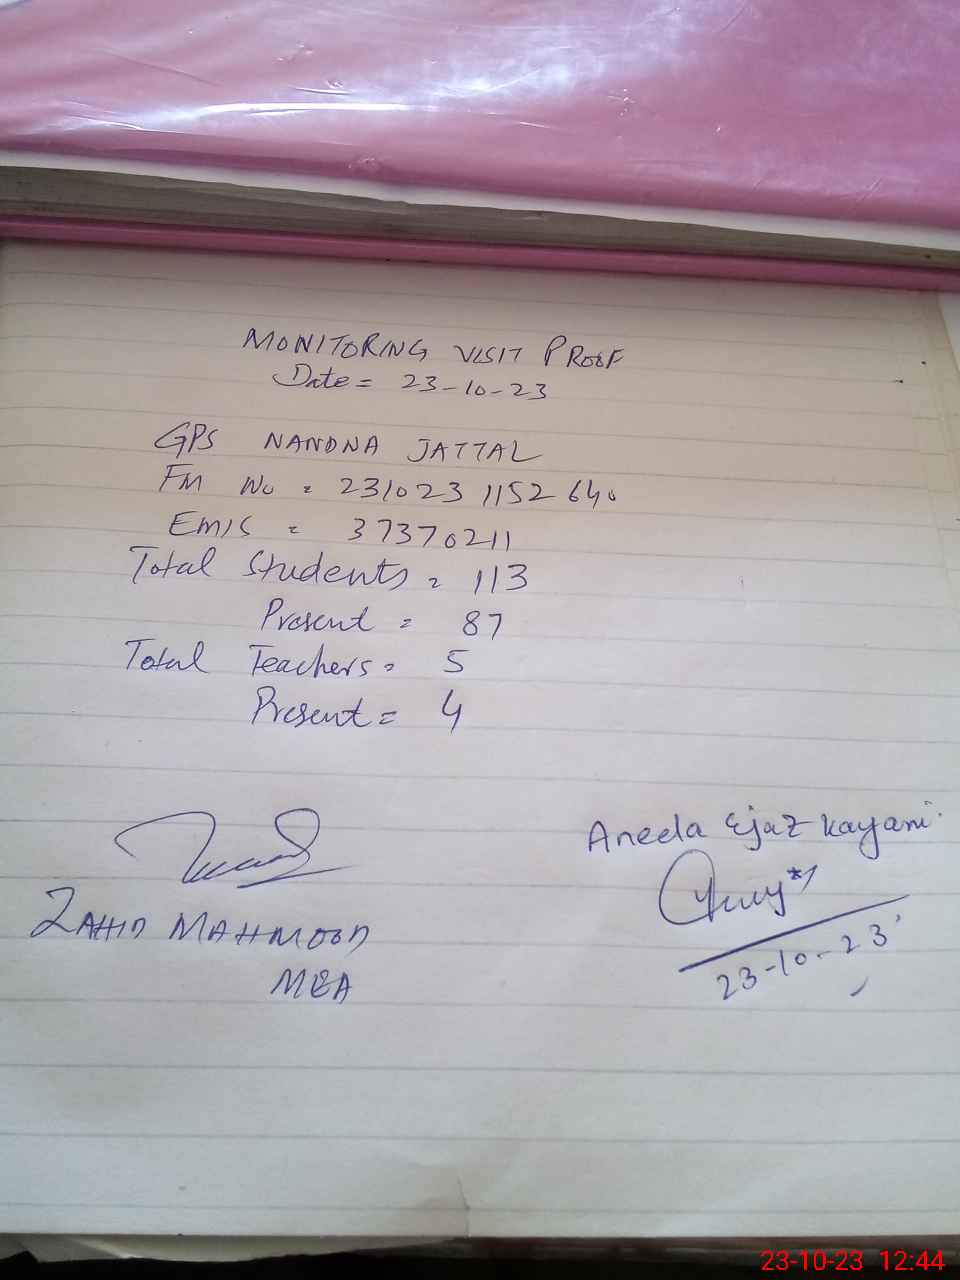 MONITORING VISIT PROOF
Date = 23-10-23
GPS NANDNA JATTAL
FM No = 2310231152640
EMIS = 37370211
Total Students = 113
Present = 87
Total Teachers = 5
Present = 4
Aneela Ejaz Kayani
ZAHID MAHMOOD
MEA
23-10-23
23-10-23 12:44